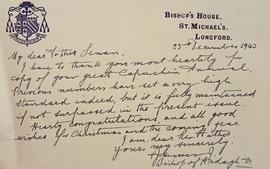 BISHOP'S HOUSE,
ST. MICHAEL'S,
LONGFORD.
23rd December 1940
My dear Father Senan,
I have to thank you most heartily for
copy of your great Capuchin Annual.
Previous numbers have set a very high
standard indeed, but it is fully maintained
if not surpassed in the present issue.
Hearty congratulations and all good
wishes for Christmas and the coming year.
I am, dear Father,
Yours very sincerely,
Bishop of Ardagh